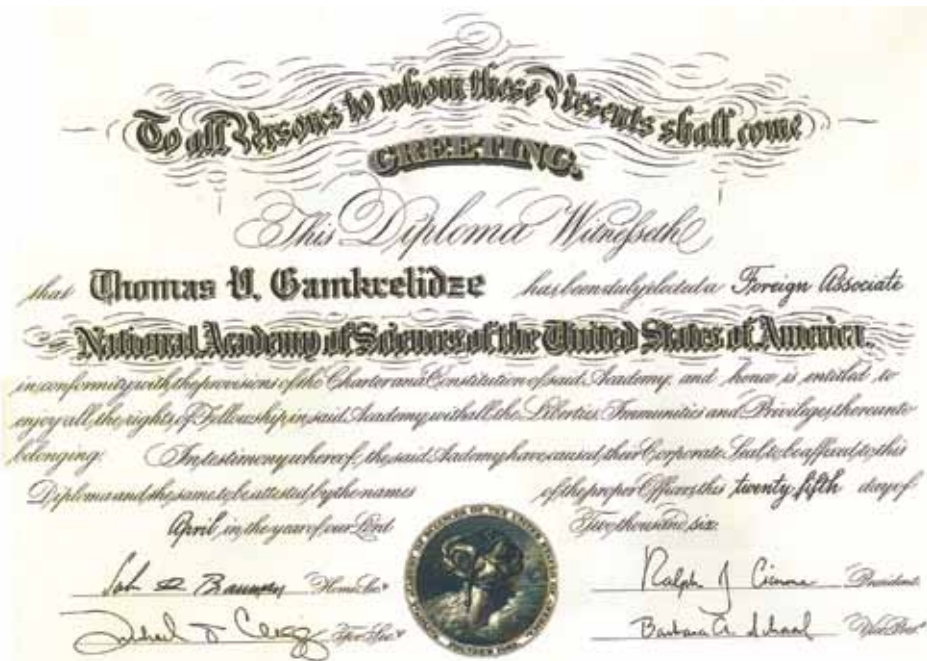 To all Persons to whom these Presents shall come
GREETING.
This Diploma Witnesseth
that Thomas V. Gamkrelidze has been duly elected a Foreign Associate
National Academy of Sciences of the United States of America.
in conformity with the provisions of the Charter and Constitution of said Academy, and hence is entitled to
enjoy all the rights of Fellowship in said Academy with all the Liberties, Immunities and Privileges thereunto
belonging. In testimony whereof, the said Academy have caused their Corporate Seal to be affixed to this
Diploma and the same to be attested by the names of the proper Officers this twenty fifth day of
April in the year of our Lord Two thousand six.
Home Sec.y Ralph J Cicerone President
For Sec.y Barbara A. Schaal Vice Pres.t
NATIONAL ACADEMY OF SCIENCES OF THE UNITED STATES OF AMERICA